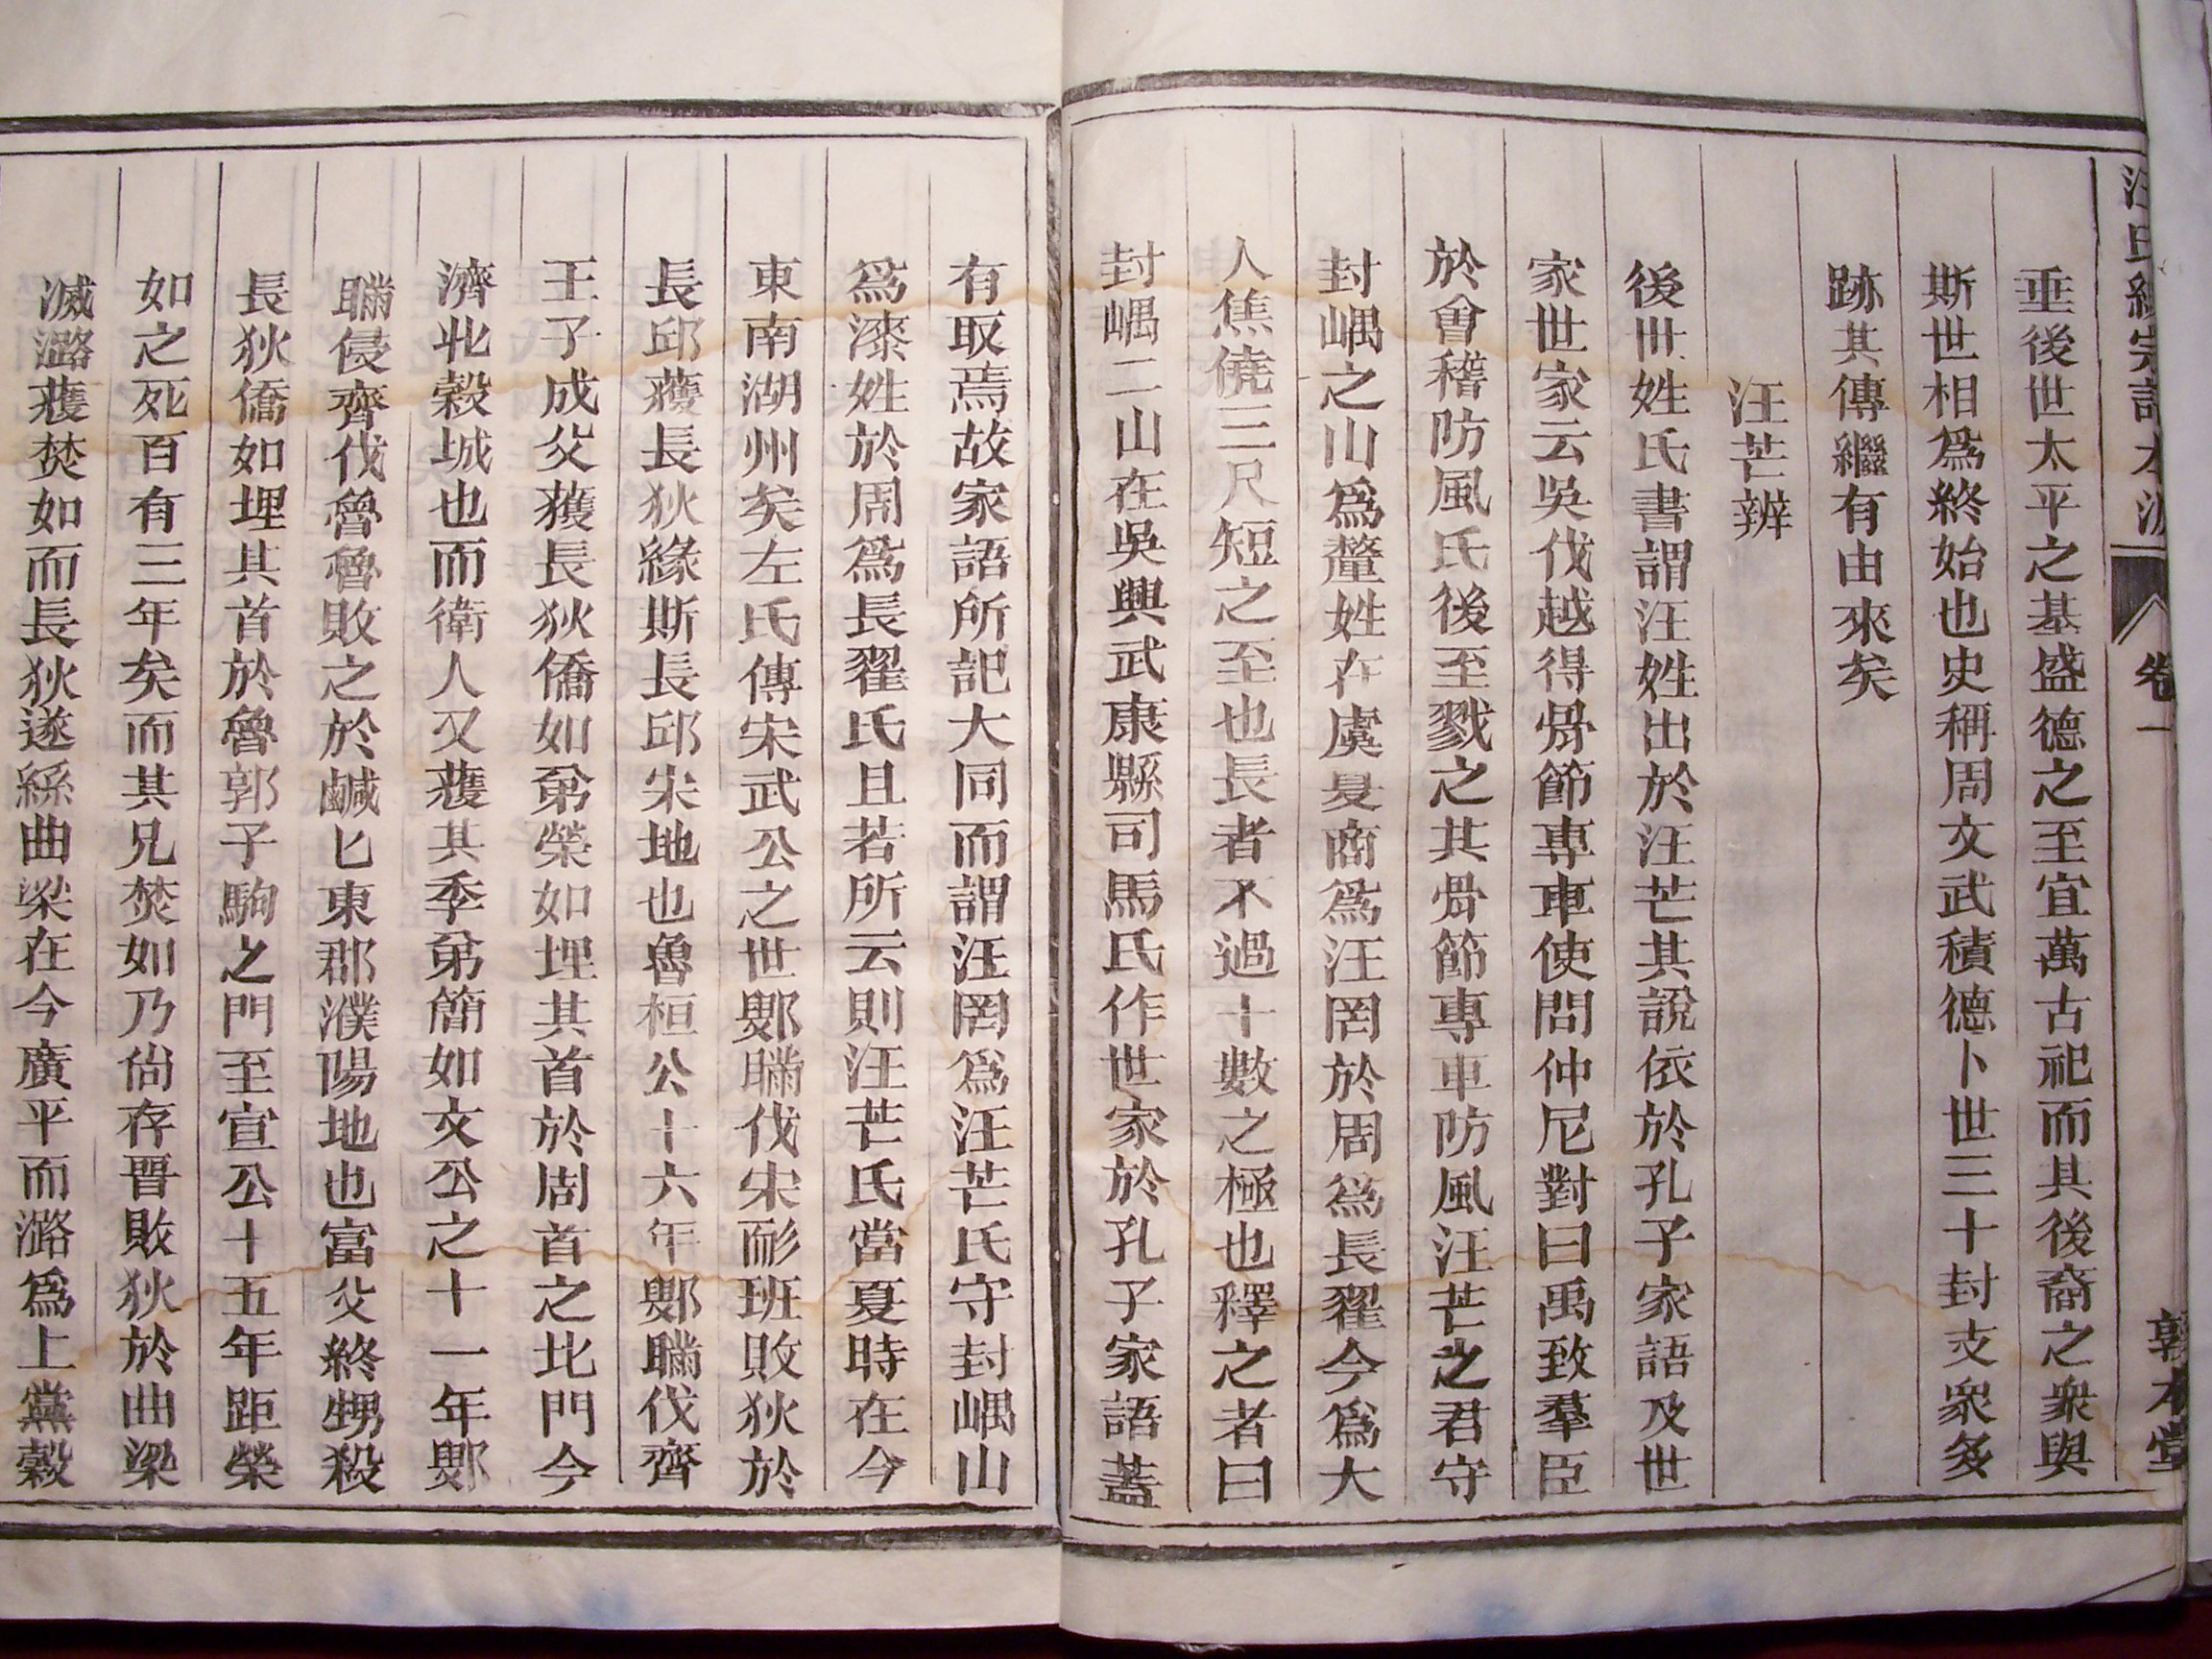 汪氏統宗譜本源 卷一 敦本堂
垂後世太平之基盛德之至宜萬古祀而其後裔之衆與
斯世相爲終始也史稱周文武積德卜世三十封支衆多
跡其傳繼有由來矣
汪芒辨
後世姓氏書謂汪姓出於汪芒其說依於孔子家語及世
家世家云吳伐越得骨節專車使問仲尼對曰禹致羣臣
於會稽防風氏後至戮之其骨節專車防風汪芒之君守
封嵎之山爲釐姓在虞夏商爲汪罔於周爲長翟今爲大
人焦僥三尺短之至也長者不過十數之極也釋之者曰
封嵎二山在吳興武康縣司馬氏作世家於孔子家語蓋
有取焉故家語所記大同而謂汪罔爲汪芒氏守封嵎山
爲漆姓於周爲長翟氏且若所云則汪芒氏當夏時在今
東南湖州矣左氏傳宋武公之世鄋瞞伐宋耏班敗狄於
長邱獲長狄緣斯長邱宋地也魯桓公十六年鄋瞞伐齊
王子成父獲長狄僑如弟榮如埋其首於周首之北門今
濟北穀城也而衛人又獲其季弟簡如文公之十一年鄋
瞞侵齊伐魯魯敗之於鹹匕東郡濮陽地也富父終甥殺
長狄僑如埋其首於魯郭子駒之門至宣公十五年距榮
如之死百有三年矣而其兄焚如乃尙存晉敗狄於曲梁
滅潞獲焚如而長狄遂絲曲梁在今廣平而潞爲上黨穀